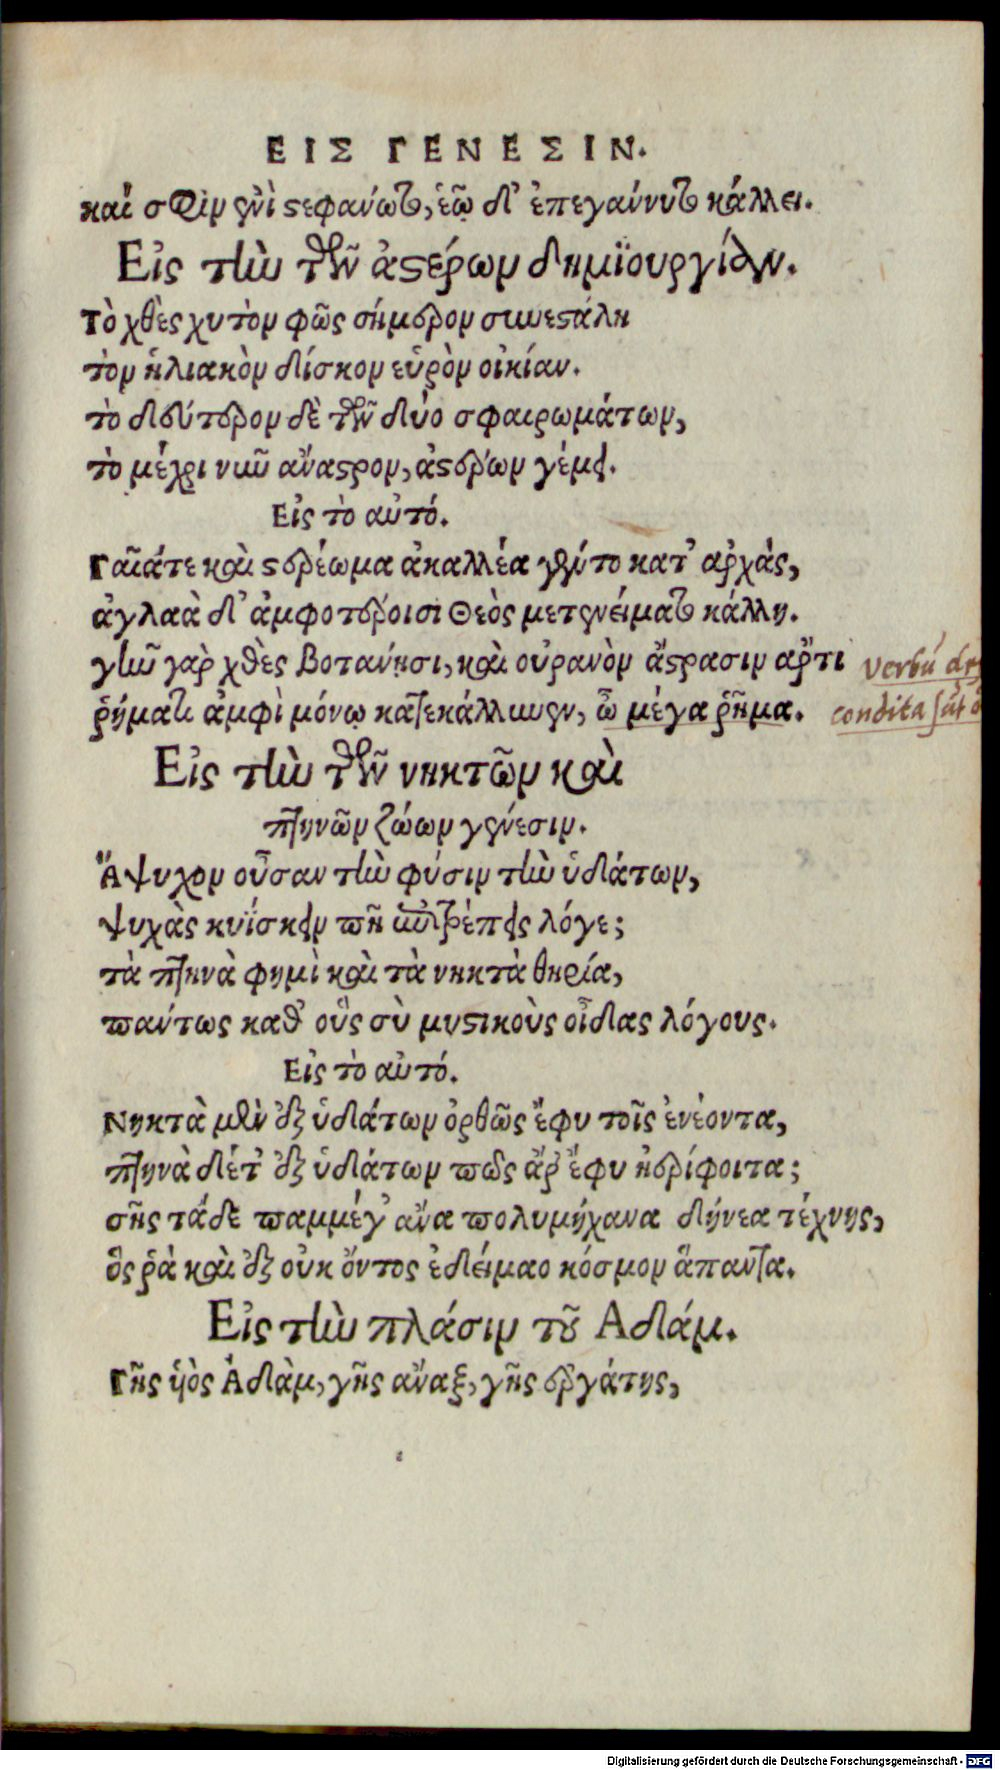 ΕΙΣ ΓΕΝΕΣΙΝ.
καί σφιν ἐνὶ στεφανώσατο, ἑῷ δ' ἐπεγαίνυτο κάλλει.
Εἰς τὴν τῶν ἀστέρων δημϊουργίαν.
Τὸ χθὲς χυτὸν φῶς σήμερον συνεστάλη
τὸν ἡλιακὸν δίσκον εὑρὸν οἰκίαν.
τὸ δεύτερον δὲ τῶν δύο σφαιρωμάτων,
τὸ μέχρι νῦν ἄναστρον, ἀστέρων γέμει.
Εἰς τὸ αὐτό.
Γαῖά τε καὶ στερέωμα ἀκαλλέα γένετο κατ' ἀρχὰς,
ἀγλαὰ δ' ἀμφοτέροισι Θεὸς μετενείματο κάλλη.
γῆν γὰρ χθὲς βοτάνῃσι, καὶ οὐρανὸν ἄστρασιν ἄρτι
ῥήματι ἀμφὶ μόνῳ κατεκάλλυνεν, ὦ μέγα ῥῆμα.
verbū
condita sūt
Εἰς τὴν τῶν νηκτῶν καὶ
πτηνῶν ζώων γένεσιν.
Ἄψυχον οὖσαν τὴν φύσιν τὴν ὑδάτων,
ψυχὰς κυΐσκειν πῆ ἐπιτρέπεις λόγε;
τὰ πτηνὰ φημὶ καὶ τὰ νηκτὰ θηρία,
πάντως καθ' οὓς σὺ μυστικοὺς οἶδας λόγους.
Εἰς τὸ αὐτό.
Νηκτὰ μὲν ἐξ ὑδάτων ὀρθῶς ἔφυ τοῖς ἐνέοντα,
πτηνὰ δέ τ' ἐξ ὑδάτων πῶς ἄρ' ἔφυ ἠερίφοιτα;
σῆς τάδε παμμέγ' ἄνα πολυμήχανα δήνεα τέχνης,
ὅς ῥὰ καὶ ἐξ οὐκ ὄντος ἐδείμαο κόσμον ἅπαντα.
Εἰς τὴν πλάσιν τοῦ Ἀδάμ.
Γῆς ὑὸς Ἀδὰμ, γῆς ἄναξ, γῆς ἐργάτης,
Digitalisierung gefördert durch die Deutsche Forschungsgemeinschaft - DFG